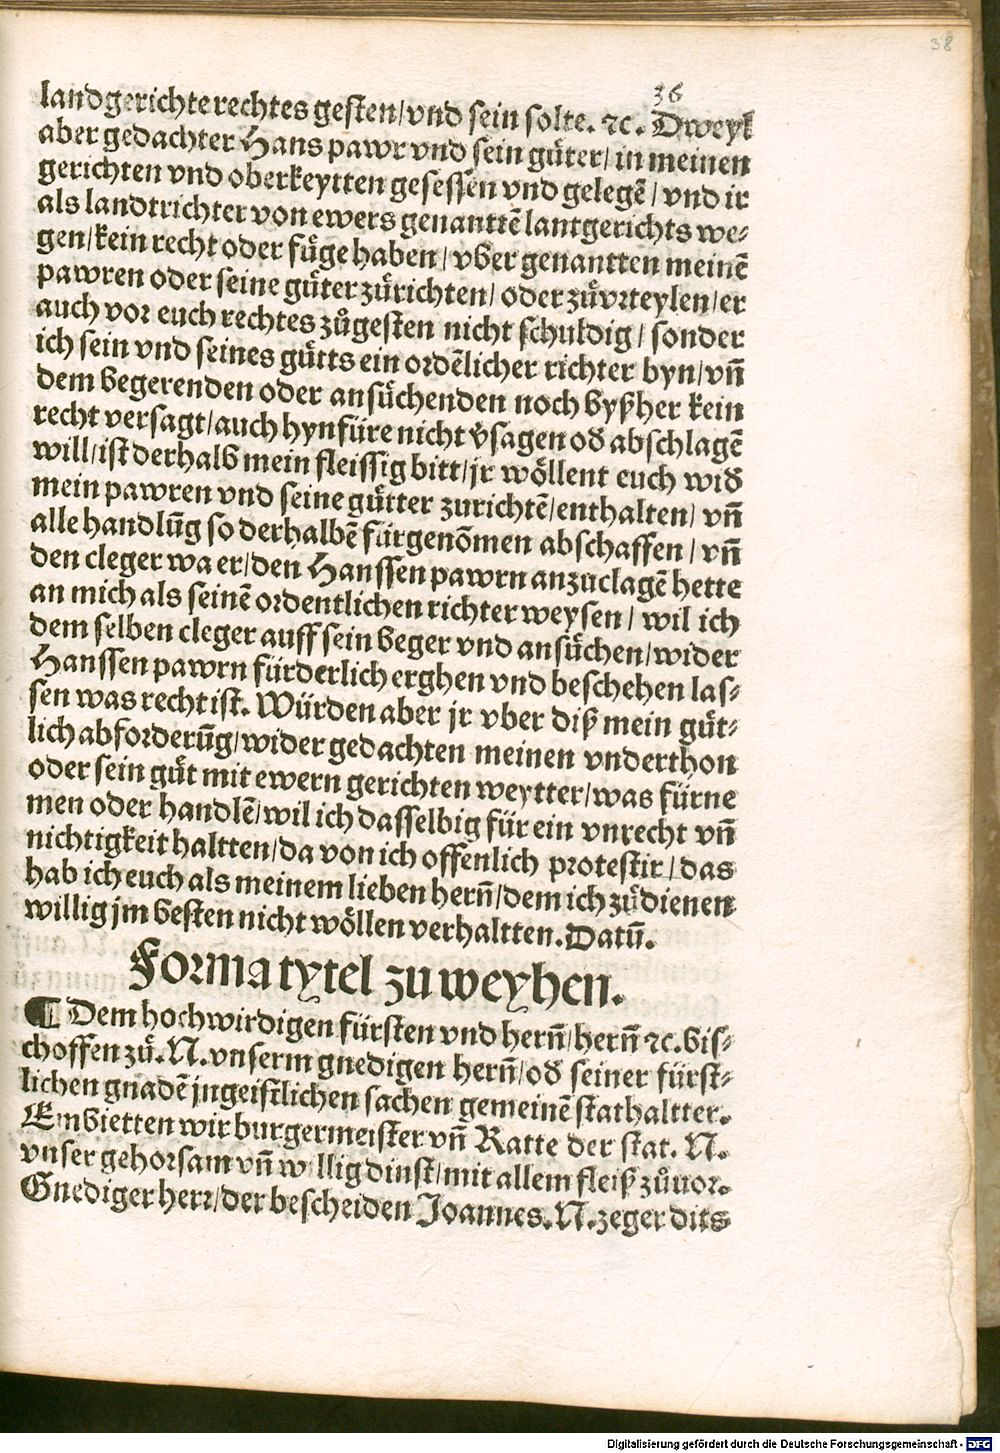 38
36
landgerichte rechtes gesten/vnd sein solte. ⁊c. Dweyl
aber gedachter Hans pawr vnd sein gu̎ter/ in meinen
gerichten vnd oberkeytten gesessen vnd gelegē/ vnd ir
als landtrichter von ewers genanttē lantgerichts we⸗
gen/kein recht oder fu̎ge haben/ vber genantten meinē
pawren oder seine gu̎ter zu̎richten/ oder zu̎vrteylen/er
auch vor euch rechtes zůgesten nicht schuldig/ sonder
ich sein vnd seines gu̎tts ein ordēlicher richter byn/vn̄
dem begerenden oder ansu̎chenden noch byßher kein
recht versagt/auch hynfüre nicht v̾sagen oď abschlagē
will/ist derhalb mein fleissig bitt/jr wöllent euch wiď
mein pawren vnd seine gu̎tter zurichtē/enthalten/ vn̄
alle handlūg so derhalbē fürgenōmen abschaffen/ vn̄
den cleger wa er/den Hanssen pawrn anzuclagē hette
an mich als seinē ordentlichen richter weysen/ wil ich
dem selben cleger auff sein beger vnd ansu̎chen/wider
Hanssen pawrn fürderlich erghen vnd beschehen las⸗
sen was recht ist. Würden aber jr vber diß mein gu̎t⸗
lich abforderūg/wider gedachten meinen vnderthon
oder sein gu̎t mit ewern gerichten weytter/was fürne
men oder handlē/wil ich dasselbig für ein vnrecht vn̄
nichtigkeit haltten/da von ich offenlich protestir/das
hab ich euch als meinem lieben hern̄/dem ich zu̎dienen
willig jm besten nicht wöllen verhaltten. Datū.
Forma tytel zu weyhen.
¶ Dem hochwirdigen fürsten vnd hern̄/hern̄ ⁊c. bis⸗
choffen zu̎. N. vnserm gnedigen hern̄/oď seiner fürst⸗
lichen gnadē jn geistlichen sachen gemeinē stathaltter.
Embietten wir burgermeister vn̄ Ratte der stat. N.
vnser gehorsam vn̄ willig dinst/mit allem fleiß zůuor.
Gnediger herr/der bescheiden Joannes. N. zeger dits
Digitalisierung gefördert durch die Deutsche Forschungsgemeinschaft - DFG